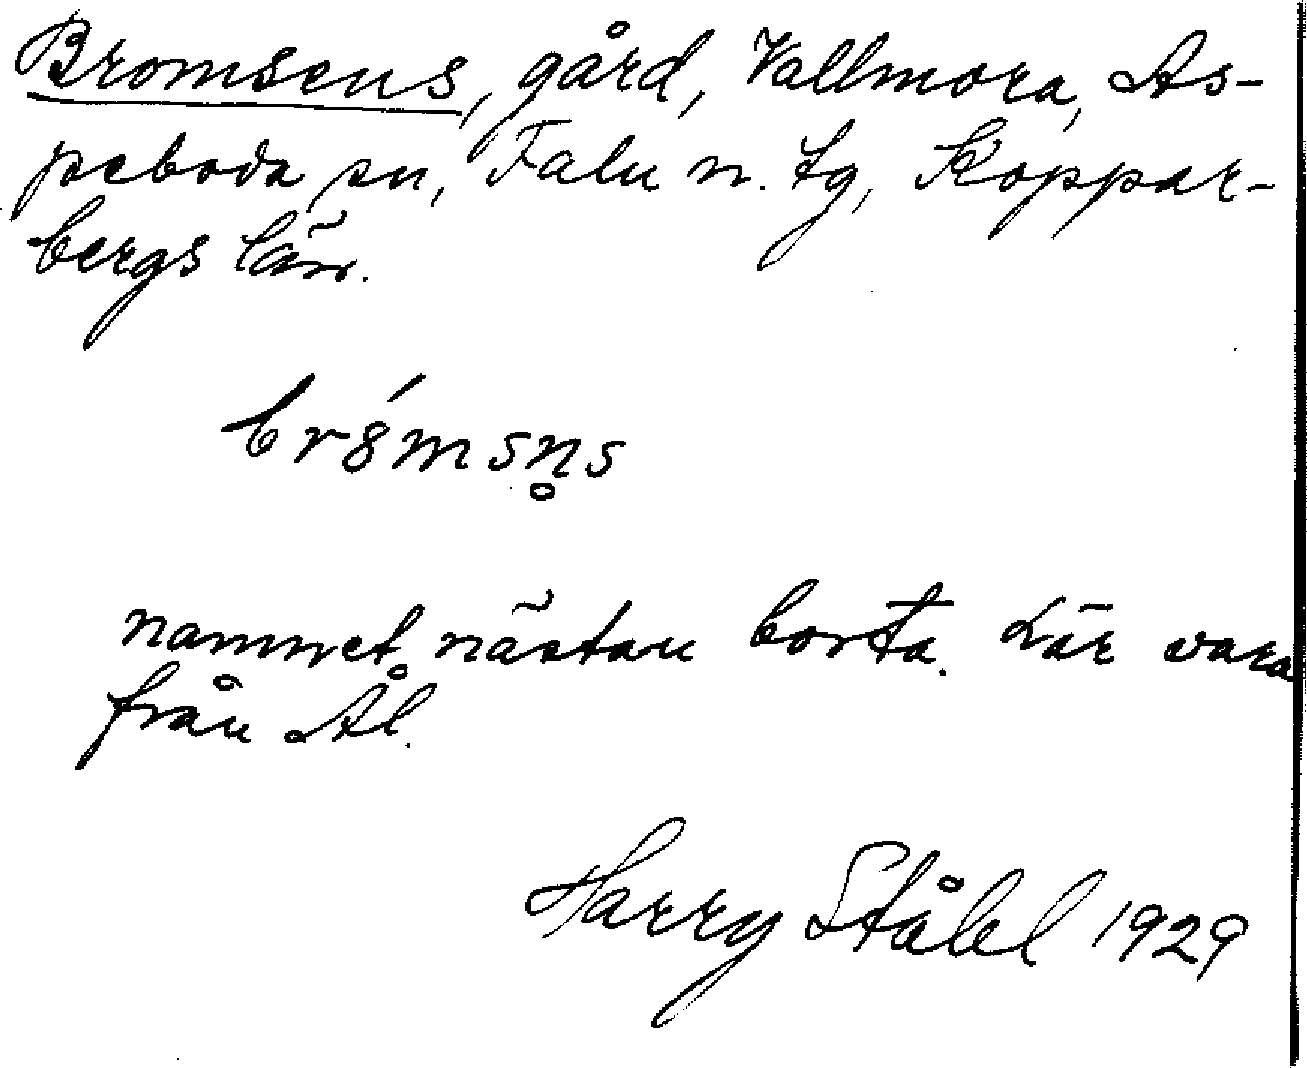 Bromsens, gård, Vallmora, As-
peboda sn, Falu n. tg, Koppar-
bergs län.
br8́msn̥s
namnet nästan borta. Lär vara
från Ål.
Harry Ståhl 1929